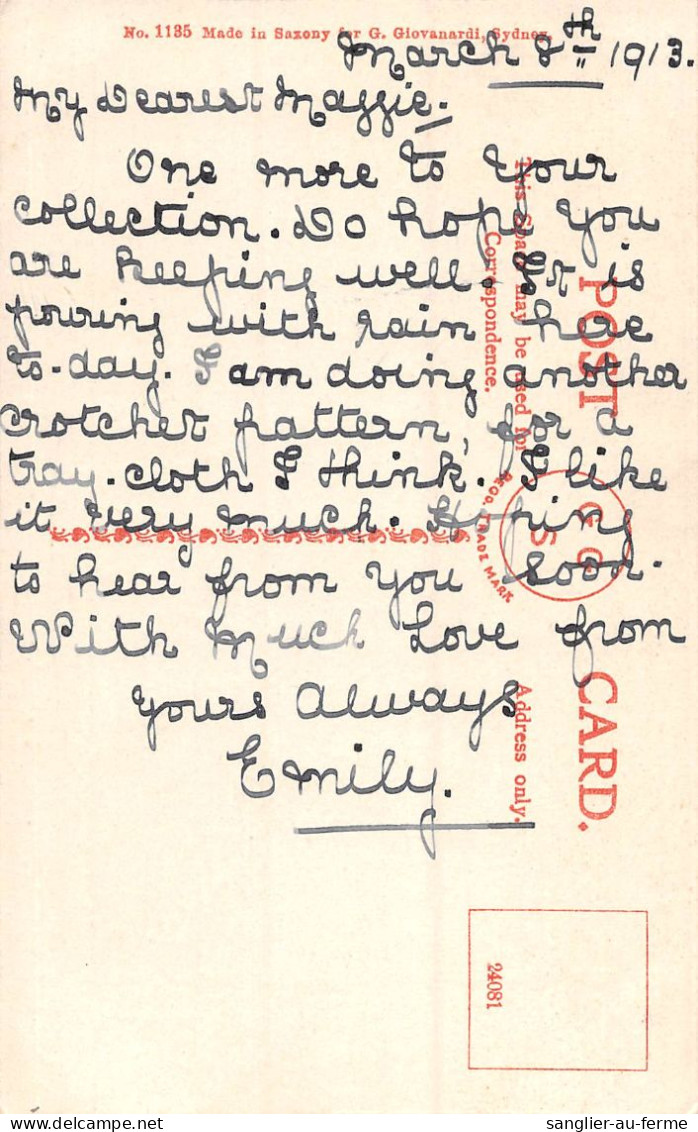 No. 1135 Made in Saxony for G. Giovanardi, Sydney.
March 8th 1913.
My Dearest Maggie.
One more to your
collection. Do hope you
are keeping well. It is
pouring with rain here
to-day. I am doing another
crotchet pattern, for a
tray-cloth I think. I like
it very much. Hoping
to hear from you soon.
With Much Love from
Yours Always
Emily.
POST CARD.
This Space may be used for
Correspondence.
G. G.
S
REGD. TRADE MARK
Address only.
24081
sanglier-au-ferme